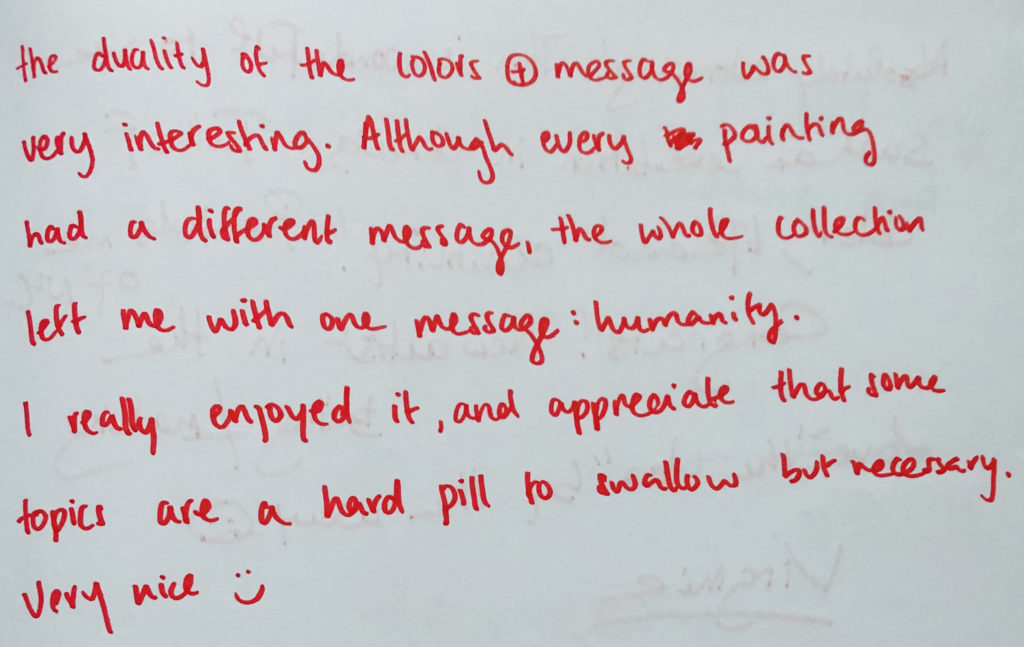 the duality of the colors ⊕ message was
very interesting. Although every painting
had a different message, the whole collection
left me with one message: humanity.
I really enjoyed it, and appreciate that some
topics are a hard pill to swallow but necessary.
Very nice :)